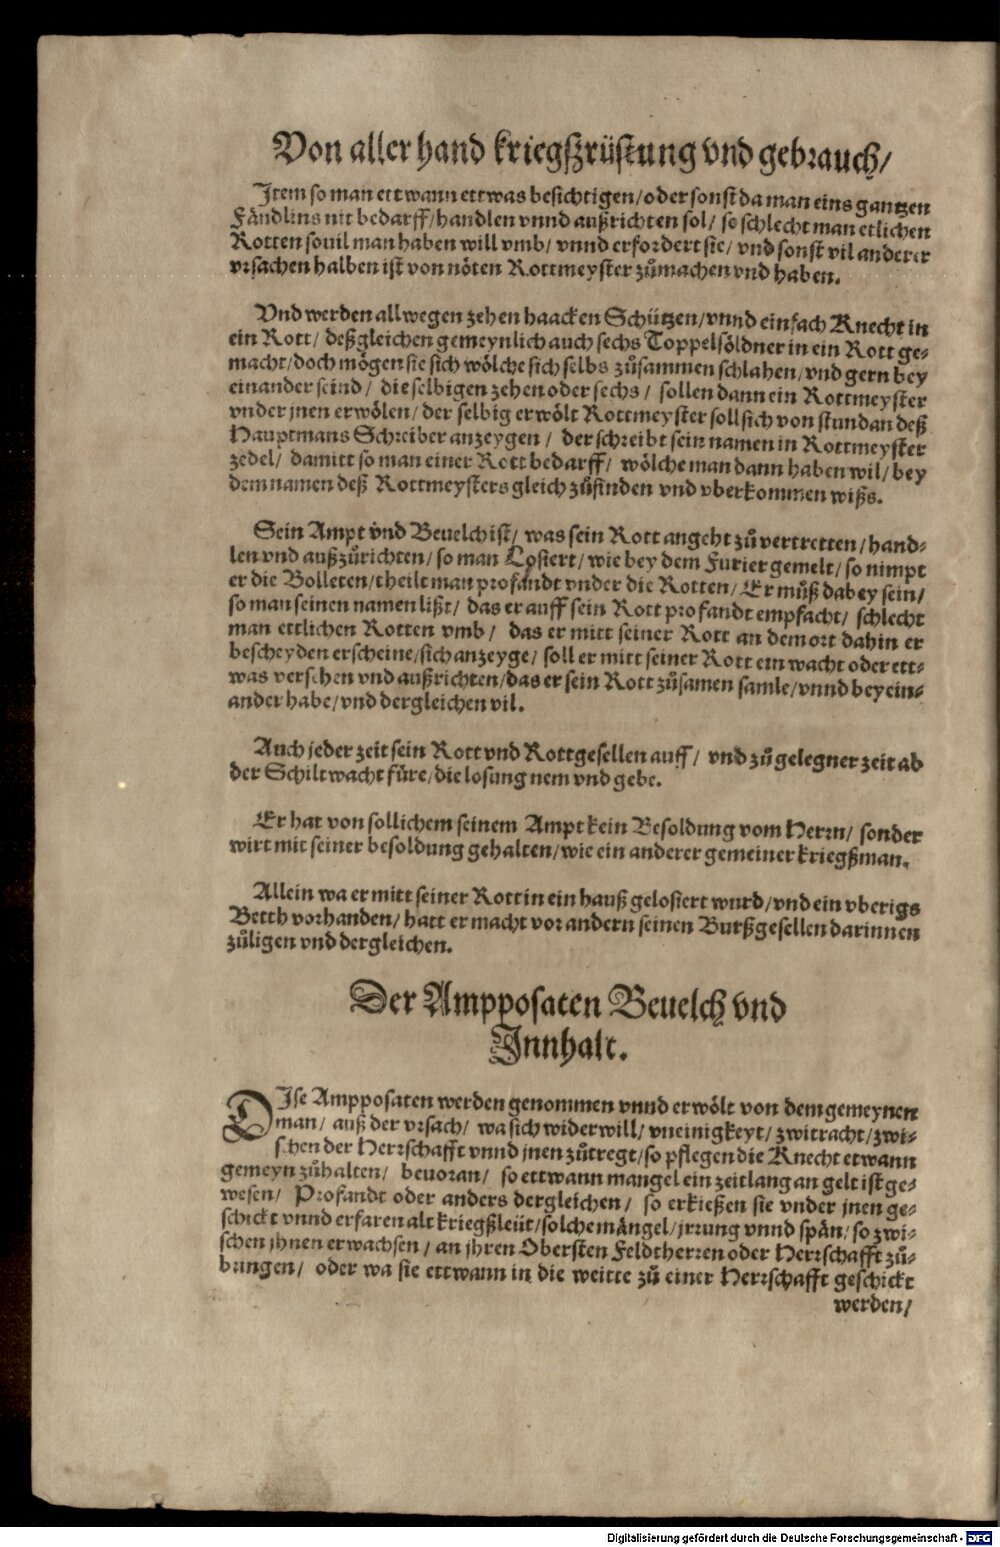 Von aller hand kriegßrüstung vnd gebrauch/
Item so man ettwann ettwas besichtigen/oder sonst da man eins gantzen
Fändlins nit bedarff/handlen vnnd außrichten sol/ so schlecht man etlichen
Rotten souil man haben will vmb/ vnnd erfordert sie/ vnd sonst vil anderer
vrsachen halben ist von nöten Rottmeyster zůmachen vnd haben.
Vnd werden allwegen zehen haacken Schützen/vnnd einfach Knecht in
ein Rott/ deßgleichen gemeynlich auch sechs Toppelsöldner in ein Rott ge-
macht/doch mögen sie sich wölche sich selbs zůsammen schlahen/vnd gern bey
einander seind/ die selbigen zehen oder sechs/ sollen dann ein Rottmeyster
vnder jnen erwölen/ der selbig erwölt Rottmeyster soll sich von stundan deß
Hauptmans Schreiber anzeygen/ der schreibt sein namen in Rottmeyster
zedel/ damitt so man einer Rott bedarff/ wölche man dann haben wil/ bey
dem namen deß Rottmeysters gleich zůfinden vnd vberkommen wißs.
Sein Ampt vnd Beuelch ist/ was sein Rott angeht zů vertretten/hand-
len vnd außzůrichten/ so man Losiert/ wie bey dem Furier gemelt/ so nimpt
er die Bolleten/theilt man profandt vnder die Rotten/ Er můß dabey sein/
so man seinen namen lißt/ das er auff sein Rott profandt empfacht/ schlecht
man ettlichen Rotten vmb/ das er mitt seiner Rott an dem ort dahin er
bescheyden erscheine/sich anzeyge/ soll er mitt seiner Rott ein wacht oder ett-
was versehen vnd außrichten/das er sein Rott zůsamen samle/vnnd bey ein-
ander habe/vnd dergleichen vil.
Auch jeder zeit sein Rott vnd Rottgesellen auff/ vnd zů gelegner zeit ab
der Schiltwacht füre/die losung nem vnd gebe.
Er hat von sollichem seinem Ampt kein Besoldung vom Herrn/ sonder
wirt mit seiner besoldung gehalten/wie ein anderer gemeiner kriegßman.
Allein wa er mitt seiner Rott in ein hauß gelosiert wurd/vnd ein vberigs
Betth vorhanden/ hatt er macht vor andern seinen Burßgesellen darinnen
zůligen vnd dergleichen.
Der Ampposaten Beuelch vnd
Innhalt.
DIse Ampposaten werden genommen vnnd erwölt von dem gemeynen
man/ auß der vrsach/ wa sich widerwill/ vneinigkeyt/ zwitracht/zwi-
schen der Herrschafft vnnd jnen zůtregt/so pflegen die Knecht etwann
gemeyn zůhalten/ beuoran/ so ettwann mangel ein zeitlang an gelt ist ge-
wesen/ Profandt oder anders dergleichen/ so erkießen sie vnder jnen ge-
schickt vnnd erfaren alt kriegßleüt/solche mängel/jrrung vnnd spän/ so zwi-
schen jhnen erwachsen/ an jhren Obersten Feldtherren oder Herrschafft zů-
bringen/ oder wa sie ettwann in die weitte zů einer Herrschafft geschickt
werden/
Digitalisierung gefördert durch die Deutsche Forschungsgemeinschaft - DFG